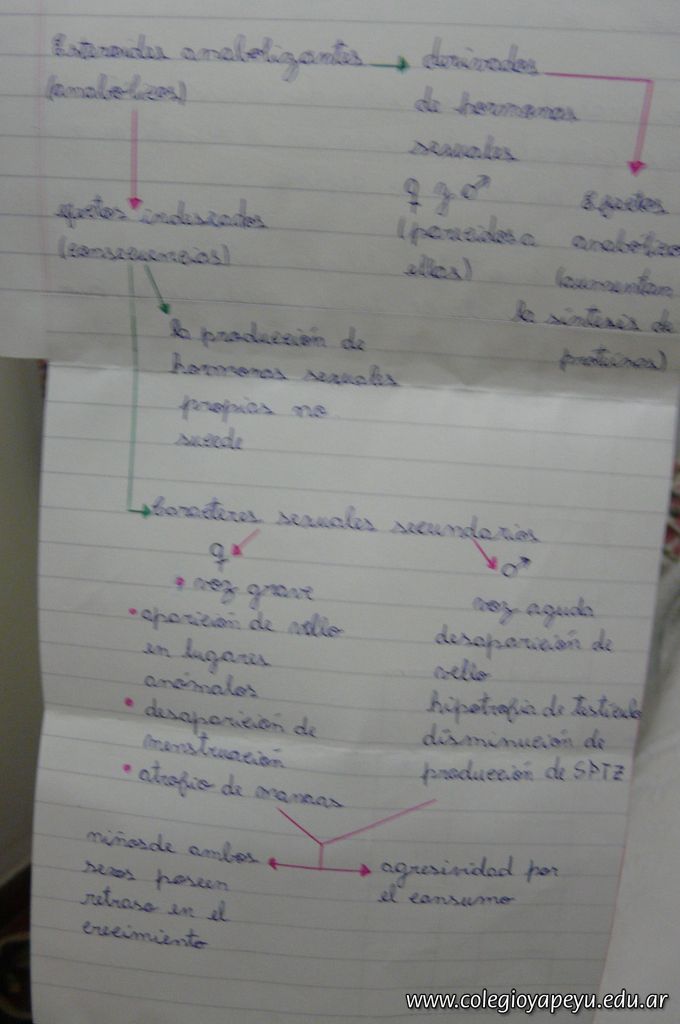 Esteroides anabolizantes → derivados
(anabolizos)
de hormonas
sexuales
♀ y ♂
(parecidos a
ellas)
Efectos
anabolizo
(aumentan
la síntesis de
proteínas)
efectos indeseados
(consecuencias)
la producción de
hormonas sexuales
propias no
sucede
Caracteres sexuales secundarios
♀
• voz grave
• aparición de vello
en lugares
anómalos
• desaparición de
menstruación
• atrofia de mamas
♂
voz aguda
desaparición de
vello
hipotrofia de testículo
disminución de
producción de SPTZ
niños de ambos
sexos poseen
retraso en el
crecimiento
agresividad por
el consumo
www.colegioyapeyu.edu.ar